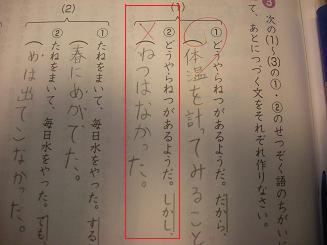 ❸ 次の(1)~(3)の①・②のせつぞく語のちがいに
て、あとにつづく文をそれぞれ作りなさい。
(1)
① どうやらねつがあるようだ。だから、
(体温を計ってみること
② どうやらねつがあるようだ。しかし、
(ねつはなかった。
(2)
① たねをまいて、毎日水をやった。する
(春にめがでた。
② たねをまいて、毎日水をやった。でも、
(めは出てこなかった。